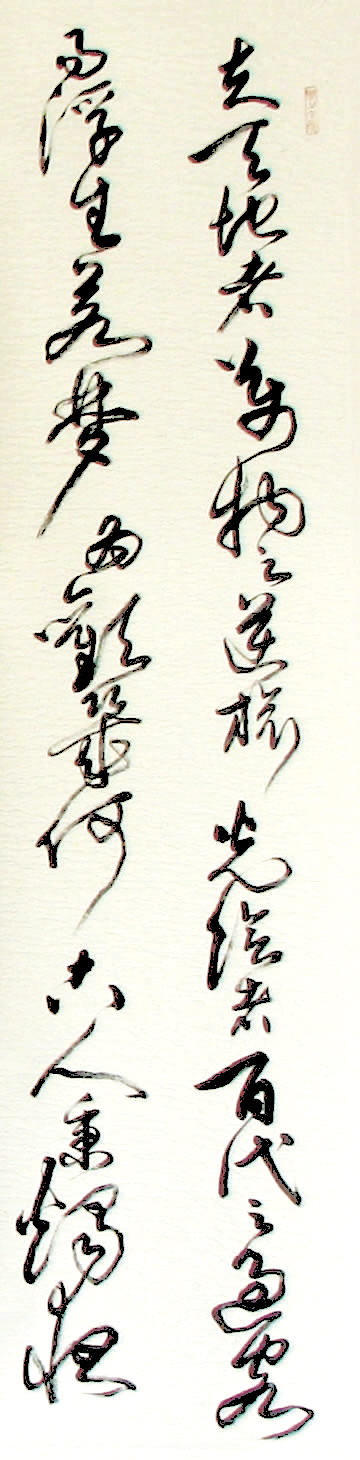 夫天地者萬物之逆旅光陰者百代之過客
而浮生若夢為歡幾何古人秉燭